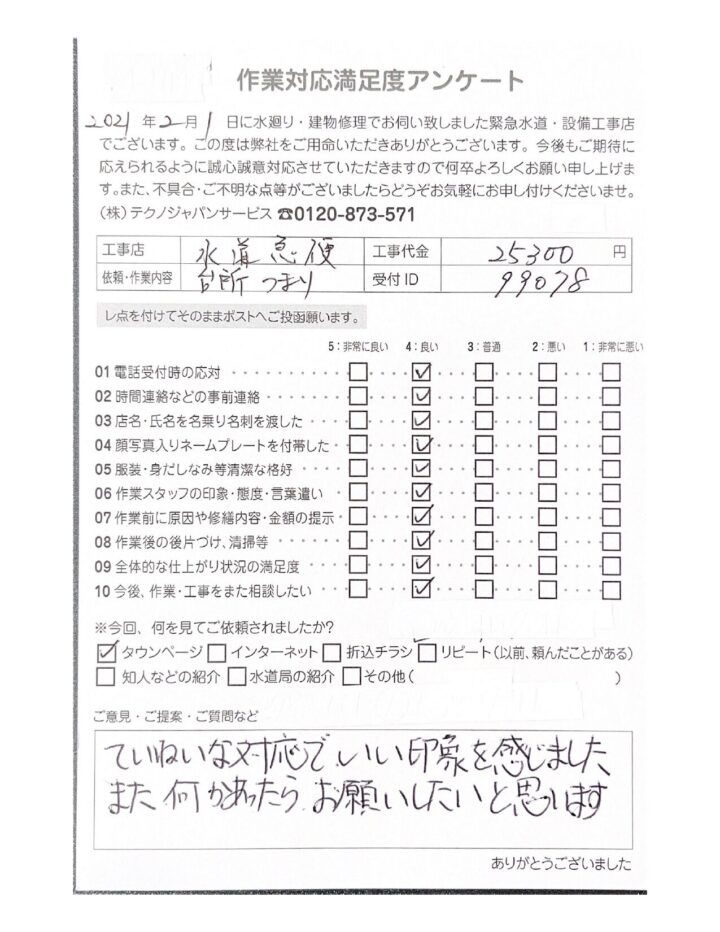 作業対応満足度アンケート
2021年2月1日に水廻り・建物修理でお伺い致しました緊急水道・設備工事店
でございます。この度は弊社をご用命いただきありがとうございます。今後もご期待に
応えられるように誠心誠意対応させていただきますので何卒よろしくお願い申し上げま
す。また、不具合・ご不明な点等がございましたらどうぞお気軽にお申し付けくださいませ。
(株)テクノジャパンサービス ☎0120-873-571
工事店 水道急便 工事代金 25300 円
依頼・作業内容 台所つまり 受付ID 99078
レ点を付けてそのままポストへご投函願います。
5:非常に良い 4:良い 3:普通 2:悪い 1:非常に悪い
01 電話受付時の応対
02 時間連絡などの事前連絡
03 店名・氏名を名乗り名刺を渡した
04 顔写真入りネームプレートを付帯した
05 服装・身だしなみ等清潔な格好
06 作業スタッフの印象・態度・言葉遣い
07 作業前に原因や修繕内容・金額の提示
08 作業後の後片づけ、清掃等
09 全体的な仕上がり状況の満足度
10 今後、作業・工事をまた相談したい
※今回、何を見てご依頼されましたか?
☑タウンページ □インターネット □折込チラシ □リピート(以前、頼んだことがある)
□知人などの紹介 □水道局の紹介 □その他( )
ご意見・ご提案・ご質問など
ていねいな対応でいい印象を感じました
また何かあったらお願いしたいと思います
ありがとうございました